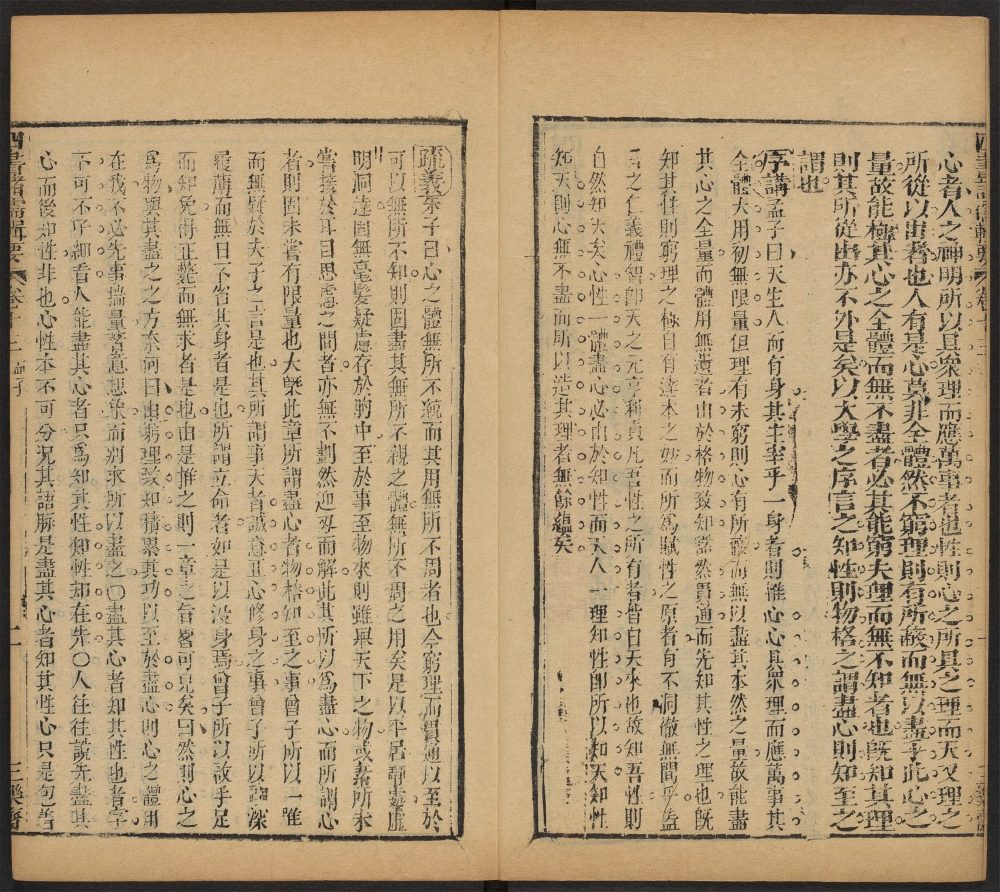 心者人之神明所以具衆理而應萬事者也性則心之所具之理而天又理之
所從以出者也人有是心莫非全體然不窮理則有所蔽而無以盡乎此心之
量故能極其心之全體而無不盡者必其能窮夫理而無不知者也旣知其理
則其所從出亦不外是矣以大學之序言之知性則物格之謂盡心則知至之
謂也
序講孟子曰天生人而有身其主宰乎一身者則誰心心具衆理而應萬事其
全體大用初無限量但理有未窮則心有所蔽而無以盡其本然之量故能盡
其心之全量而體用無遺者由於格物致知豁然貫通而先知其性之理也旣
知其性則窮理之極自有達本之妙而所爲賦性之原者有不洞徹無間乎蓋
吾之仁義禮智卽天之元亨利貞凡吾性之所有者皆自天來也故知吾性則
自然知天矣心性一體盡心必由於知性而天人一理知性卽所以知天知性
知天則心無不盡而所以造其理者無餘蘊矣
四書諸儒輯要 卷十三
疏義朱子曰心之體無所不統而其用無所不周者也今窮理而貫通以至於
可以無所不知則固盡其無所不統之體無所不周之用矣是以平居靜處虛
明洞達固無毫髮疑慮存於胸中至於事至物來則雖舉天下之物或素所未
嘗接於耳目思慮之間者亦無不劃然迎刃而解此其所以爲盡心而所謂心
者則固未嘗有限量也大槩此章所謂盡心者物格知至之事曾子所以一唯
而無疑於夫子之言是也其所謂事天者誠意正心修身之事曾子所以臨深
履薄而無日不省其身者是也所謂立命者如是以沒身焉曾子所以啟手足
而知免得正斃而無求者是也由是推之則一章之旨皆可見矣曰然則心之
爲物與其盡之之方奈何曰由窮理致知積累其功以至於盡心則心之體用
在我不必先事揣量著意想象而別求所以盡之〇盡其心者知其性也者字
不可不仔細看人能盡其心者只爲知其性知性却在先〇人往往說先盡其
心而後知性非也心性本不可分況其語脉是盡其心者知其性心只是包著
四書諸儒輯要 卷十三
二
三樂齋